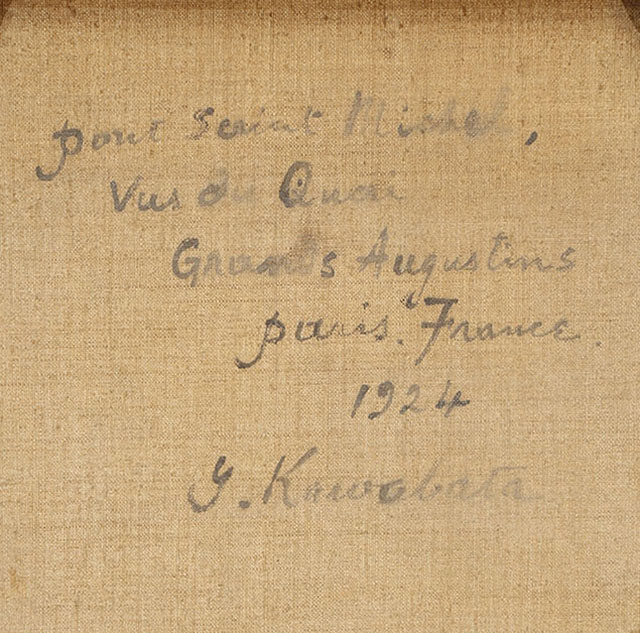 pont Saint Michel,
Vus du Quai
Grands Augustins
paris. France.
1924
Y. Kawabata